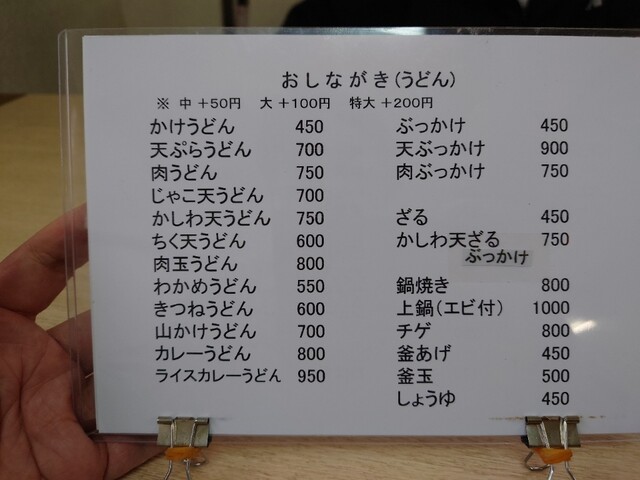 おしながき(うどん)
※ 中 +50円 大 +100円 特大 +200円
かけうどん 450
天ぷらうどん 700
肉うどん 750
じゃこ天うどん 700
かしわ天うどん 750
ちく天うどん 600
肉玉うどん 800
わかめうどん 550
きつねうどん 600
山かけうどん 700
カレーうどん 800
ライスカレーうどん 950
ぶっかけ 450
天ぶっかけ 900
肉ぶっかけ 750
ざる 450
かしわ天ざる 750
ぶっかけ
鍋焼き 800
上鍋(エビ付) 1000
チゲ 800
釜あげ 450
釜玉 500
しょうゆ 450